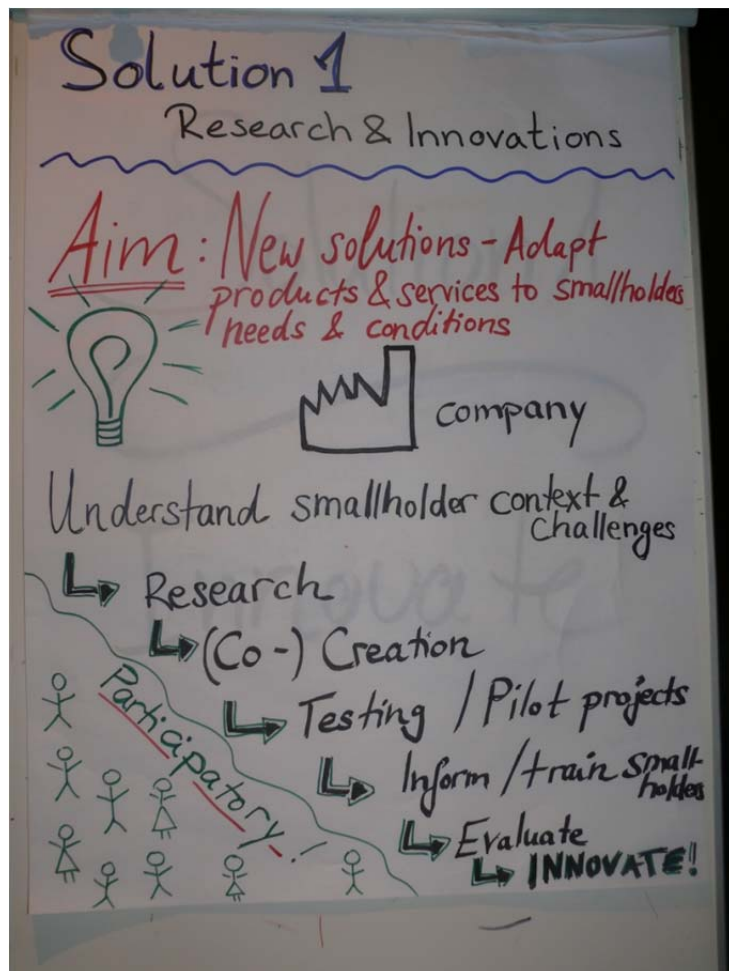 Solution 1
Research & Innovations
Aim: New solutions - Adapt
products & services to smallholders
needs & conditions
company
Understand smallholder context &
challenges
Research
(Co-) Creation
Testing / Pilot projects
Participatory!
Inform / train small-
holders
Evaluate
INNOVATE!